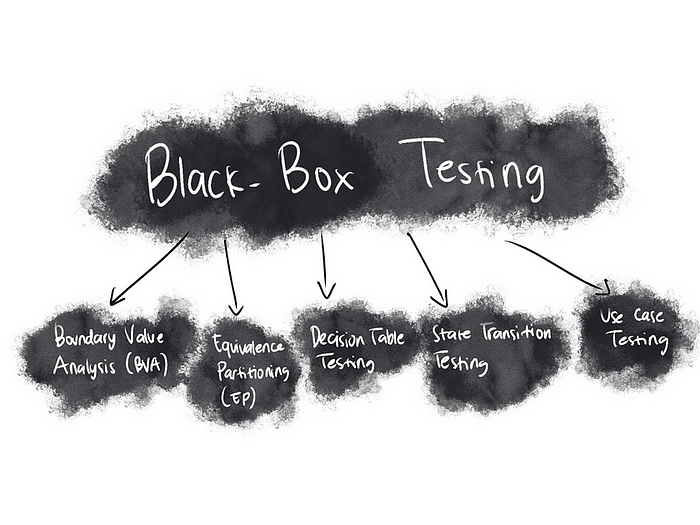 Black-Box Testing
Boundary Value
Analysis (BVA)
Equivalence
Partitioning
(EP)
Decision Table
Testing
State Transition
Testing
Use Case
Testing